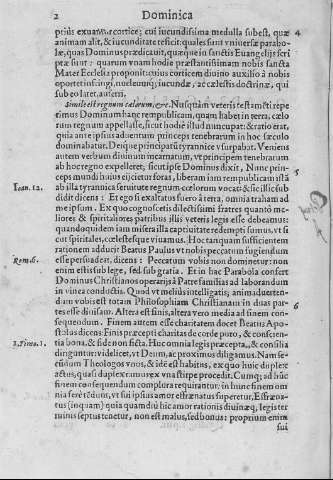 2 Dominica
prius exuamus cortice; cui iucundissima medulla subest, quæ 4
animam alit, & iucunditate reficit: quales sunt vniuersæ parabo-
læ, quas Dominus prædicauit, quæque in sanctis Euangelijs scri
ptæ sunt: quarum vnam hodie præstantissimam nobis sancta
Mater Ecclesia proponit: cuius corticem diuino auxilio à nobis
oportet infringi, nucleumq; iucundæ, ac cælestis doctrinæ, qui
sub eo latet, auferri.
Simile est regnum cælorum, &c. Nusquàm veteris testamēti repe
rimus Dominum hanc rempublicam, quam habet in terra, cælo
rum regnum appellasse, sicut hodie illud nuncupat: & ratio erat,
quia ante ipsius aduentum princeps tenebrarum in hoc sæculo
dominabatur. Deinque principatū tyrannice vsurpabat. Veniens
autem verbum diuinum incarnatum, vt principem tenebrarum
ab hoc regno expelleret, sicut ipse Dominus dixit, Nunc prin- 5
ceps mundi huius eijcietur foras, liberam iam rempublicam istā
Ioan. 12. ab illa tyrannica seruitute regnum cælorum vocat: & sic illic sub
didit dicens: Et ego si exaltatus fuero à terra, omnia traham ad
me ipsum. Ex quo cognoscetis dilectissimi fratres quantò me-
liores & spiritaliores patribus illis veteris legis esse debeamus:
quandoquidem iam misera illa captiuitate redempti sumus, vt si
cut spirituales, cælestesque viuamus. Hoc tanquam sufficientem
rationem adducit Beatus Paulus vt nobis peccatum fugiendum
Rom. 6. esse persuadeat, dicens: Peccatum vobis non dominetur: non
enim estis sub lege, sed sub gratia. Et in hac Parabola confert
Dominus Christianos operarijs à Patrefamilias ad laborandum
in vinea conductis. Quod vt melius intelligatis, animaduerten-
dum vobis est totam Philosophiam Christianam in duas par- 6
tes esse diuisam. Altera est finis, altera vero media ad finem con-
sequendum. Finem autem esse charitatem docet Beatus Apo-
stolus dicens: Finis præcepti charitas de corde puro, & conscien-
1. Timo. 1. tia bona, & fide non ficta. Huc omnia legis præcepta, & consilia
dinguntur: videlicet, vt Deum, ac proximos diligamus. Nam se-
cūdum Theologos vnus, & idē est habitus, ex quo huic duplex
actus, quasi duplex ramus ex vna stirpe procedit. Cumq; ad hūc
finem cōsequendum complura requirantur: in hunc finem om
nia ferè tēdunt, vt sui ipsius amor effrænatus superetur, Effræna-
tus (inquam) quia quamdiu hic amor rationis diuinæq, legis ter
minis septus tenetur, non est malus, sed bonus: proprium enim
sui